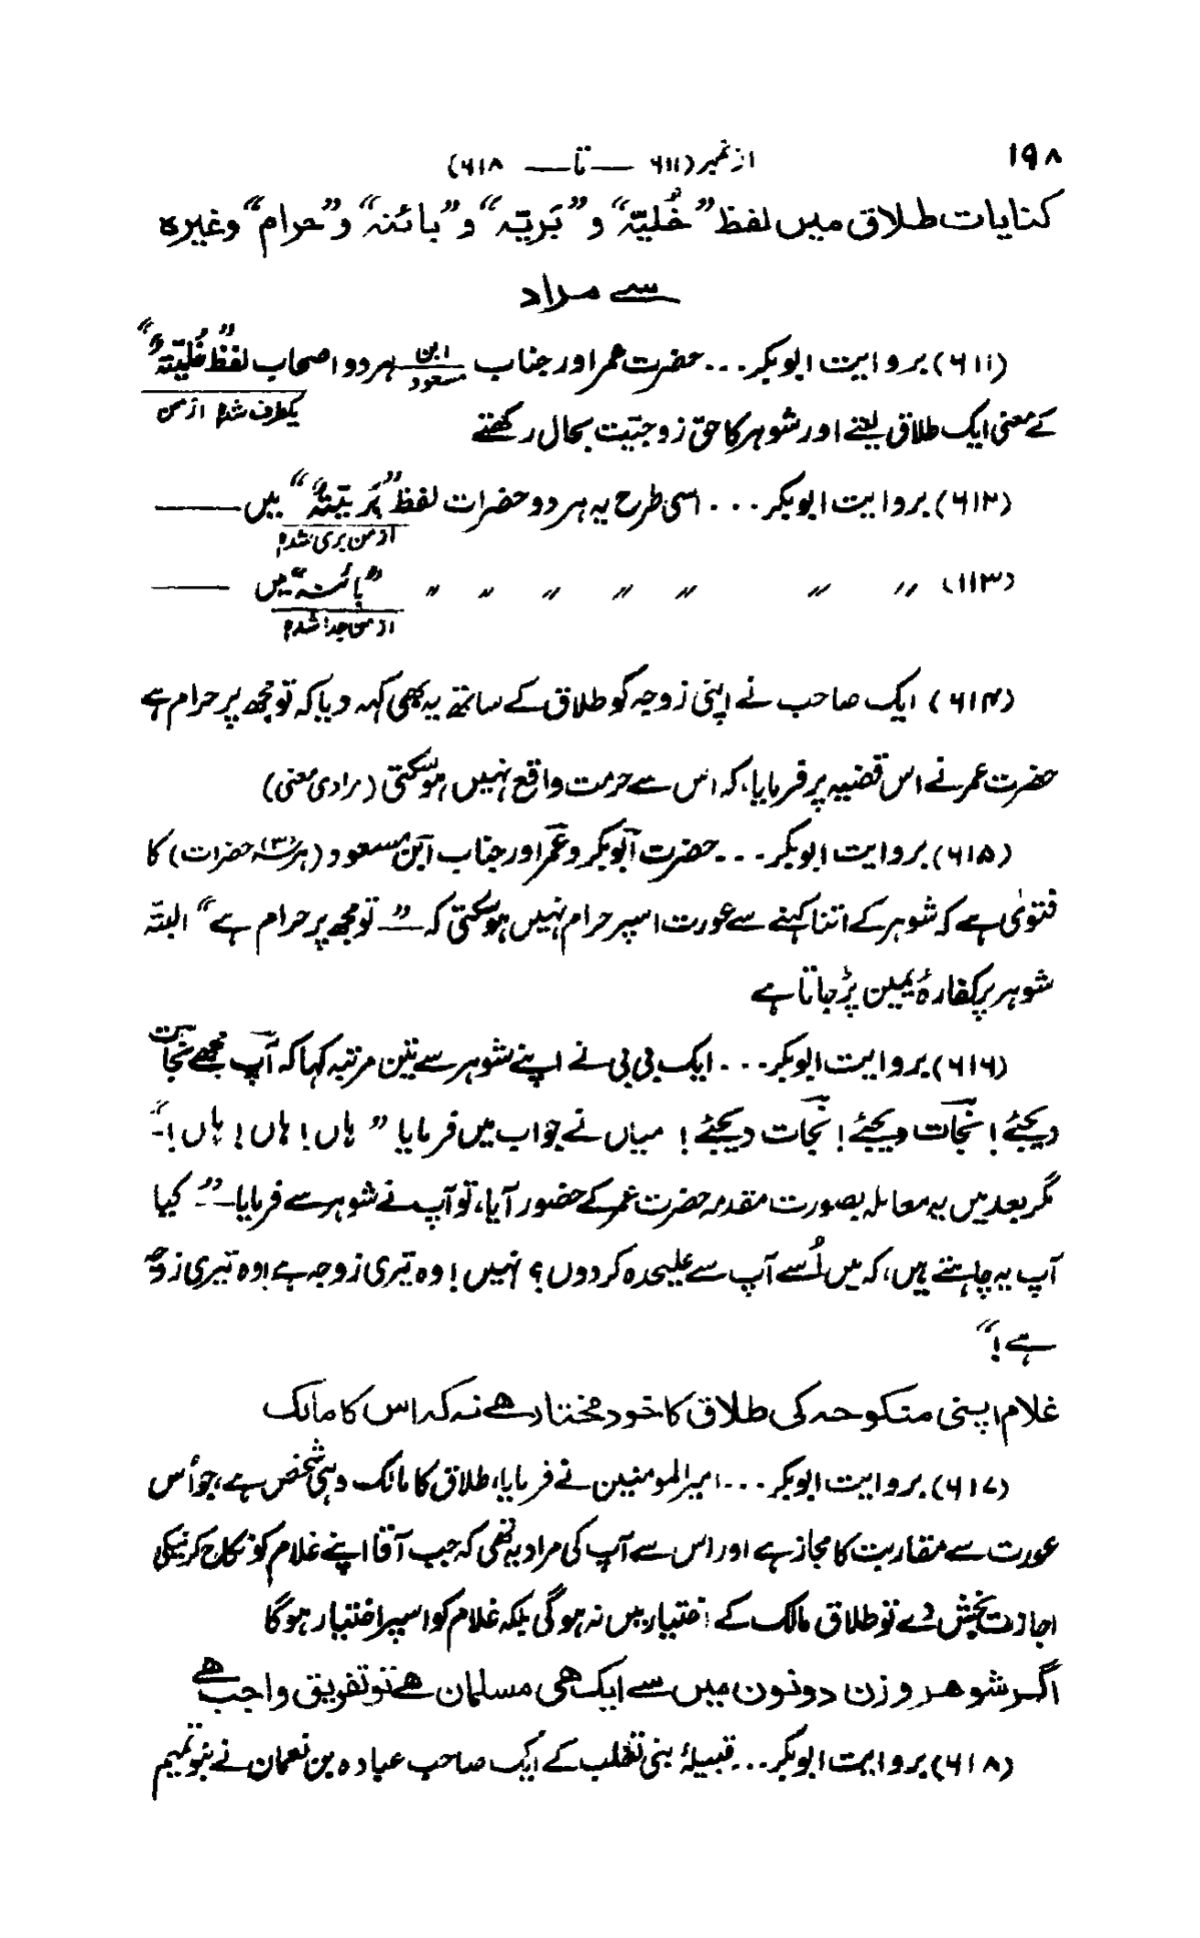 ۱۹۸
از نمبر (۶۱۱ — تا — ۶۱۸)
کنایات طلاق میں لفظ ”خُلیّہ“ و ”بَریّہ“ و ”بائنہ“ و ”حرام“ وغیرہ
سے مراد
(۶۱۱) بروایت ابوبکر... حضرت عمر اور جناب ابن مسعود ہر دو اصحاب لفظ ”خُلیّۃٌ“
یکطرف شدم از من
کے معنی ایک طلاق لیتے اور شوہر کا حق زوجیّت بحال رکھتے
(۶۱۲) بروایت ابوبکر... اسی طرح یہ ہر دو حضرات لفظ ”بَریّتہٌ“ میں ——
از من بری شدم
(۱۱۳) 〃 〃 〃 〃 〃 〃 〃 ”بائنہ“ میں ——
از من جدا شدم
(۶۱۴) ایک صاحب نے اپنی زوجہ کو طلاق کے ساتھ یہ بھی کہہ دیا کہ تو مجھ پر حرام ہے
حضرت عمر نے اس قضیہ پر فرمایا، کہ اس سے حرمت واقع نہیں ہو سکتی (مرادی معنی)
(۶۱۵) بروایت ابوبکر... حضرت ابوبکر و عمر اور جناب ابن مسعود (ہر سہ (۳) حضرات) کا
فتویٰ ہے کہ شوہر کے اتنا کہنے سے عورت اسپر حرام نہیں ہو سکتی کہ — ”تو مجھ پر حرام ہے“ البتہ
شوہر پر کفارۂ یمین پڑ جاتا ہے
(۶۱۶) بروایت ابوبکر... ایک بی بی نے اپنے شوہر سے تین مرتبہ کہا کہ آپ مجھے نجات
دیجئے! نجات دیجئے! نجات دیجئے! میاں نے جواب میں فرمایا ”ہاں! ہاں! ہاں!“
مگر بعد میں یہ معاملہ بصورت مقدمہ حضرت عمر کے حضور آیا، تو آپ نے شوہر سے فرمایا — ”کیا
آپ یہ چاہتے ہیں، کہ میں اُسے آپ سے علیحدہ کر دوں؟ نہیں! وہ تیری زوجہ ہے! وہ تیری زوجہ
ہے!“
غلام اپنی منکوحہ کی طلاق کا خود مختار ہے نہ کہ اس کا مالک
(۶۱۷) بروایت ابوبکر... امیر المومنین نے فرمایا، طلاق کا مالک وہی شخص ہے، جو اُس
عورت سے مقاربت کا مجاز ہے اور اس سے آپ کی مراد یہ تھی کہ جب آقا اپنے غلام کو نکاح کرنیکی
اجازت بخش دے تو طلاق مالک کے اختیار میں نہ ہوگی بلکہ غلام کو اسپر اختیار ہوگا
اگر شوہر و زن دونوں میں سے ایک ہی مسلمان ہے تو تفریق واجب ہے
(۶۱۸) بروایت ابوبکر... قبیلۂ بنی تغلب کے ایک صاحب عبادہ بن نعمان نے بنو تمیم